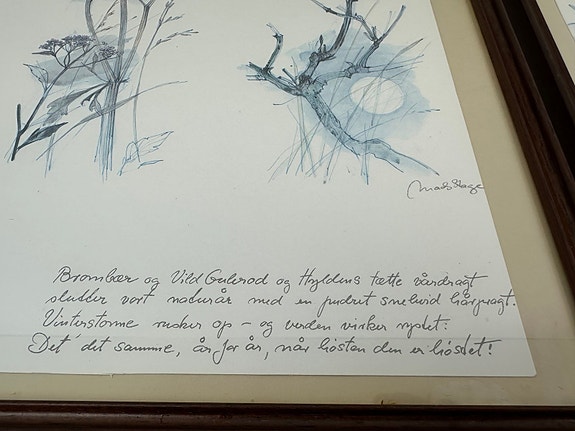 Mads Stage
Brombær og Vild Gulerod og Hyldens tætte vårdragt
slutter vort naturår med en pudret snehvid hårpragt.
Vinterstorme rusker op – og verden virker rystet:
Det' det samme, år for år, når høsten den er høstet!